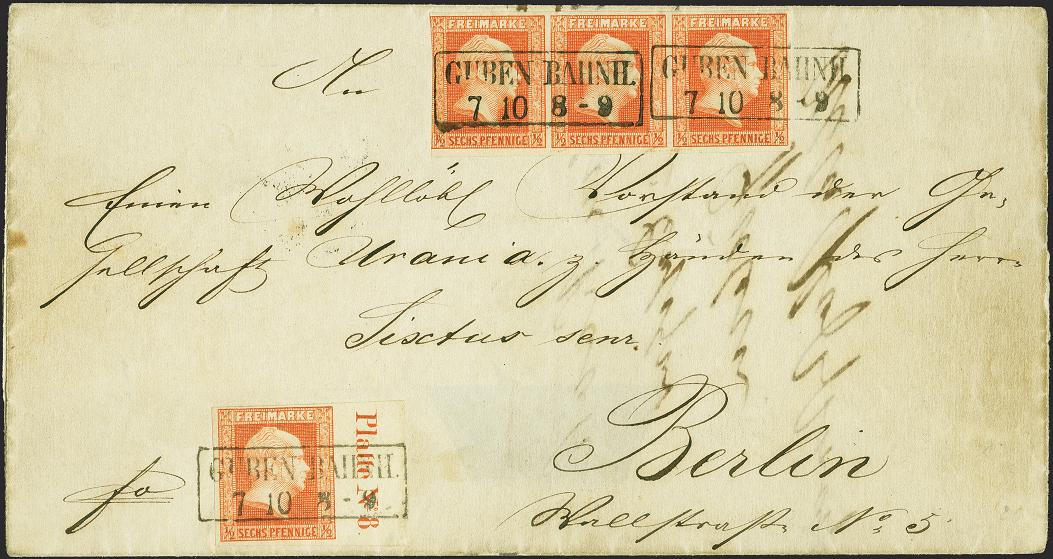 FREIMARKE FREIMARKE FREIMARKE
GUBEN BAHNH. GUBEN BAHNH.
7 10 8-9 7 10 8-9
½ SECHS PFENNIGE ½ ½ SECHS PFENNIGE ½ ½ SECHS PFENNIGE ½
An
Einen Wohllöbl Vorstand der Ge-
sellschaft Urania. z. Händen des Herrn
Sixtus senr.
Berlin
Wallstraße No 5
fo
FREIMARKE
Platte No 8
GUBEN BAHNH.
7 10 8-9
½ SECHS PFENNIGE ½